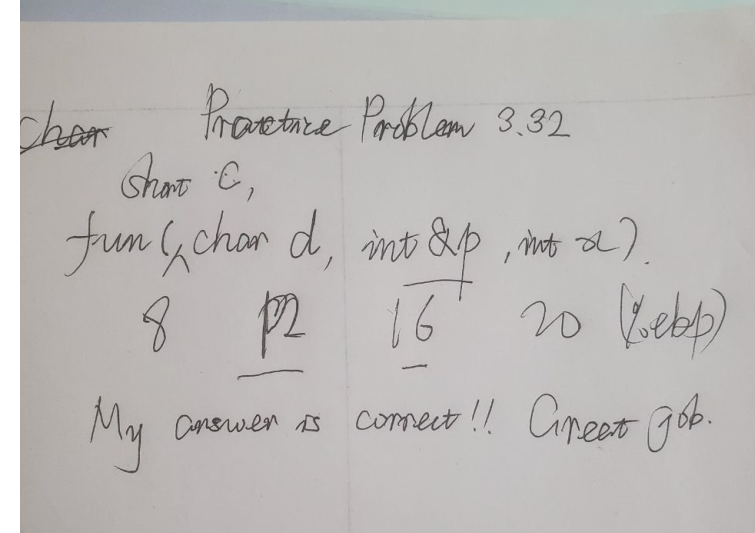 char Practice Problem 3.32
short C,
fun(^ char d, int &p, int x).
8 12 16 20 (%ebp)
My answer is correct!! Great job.